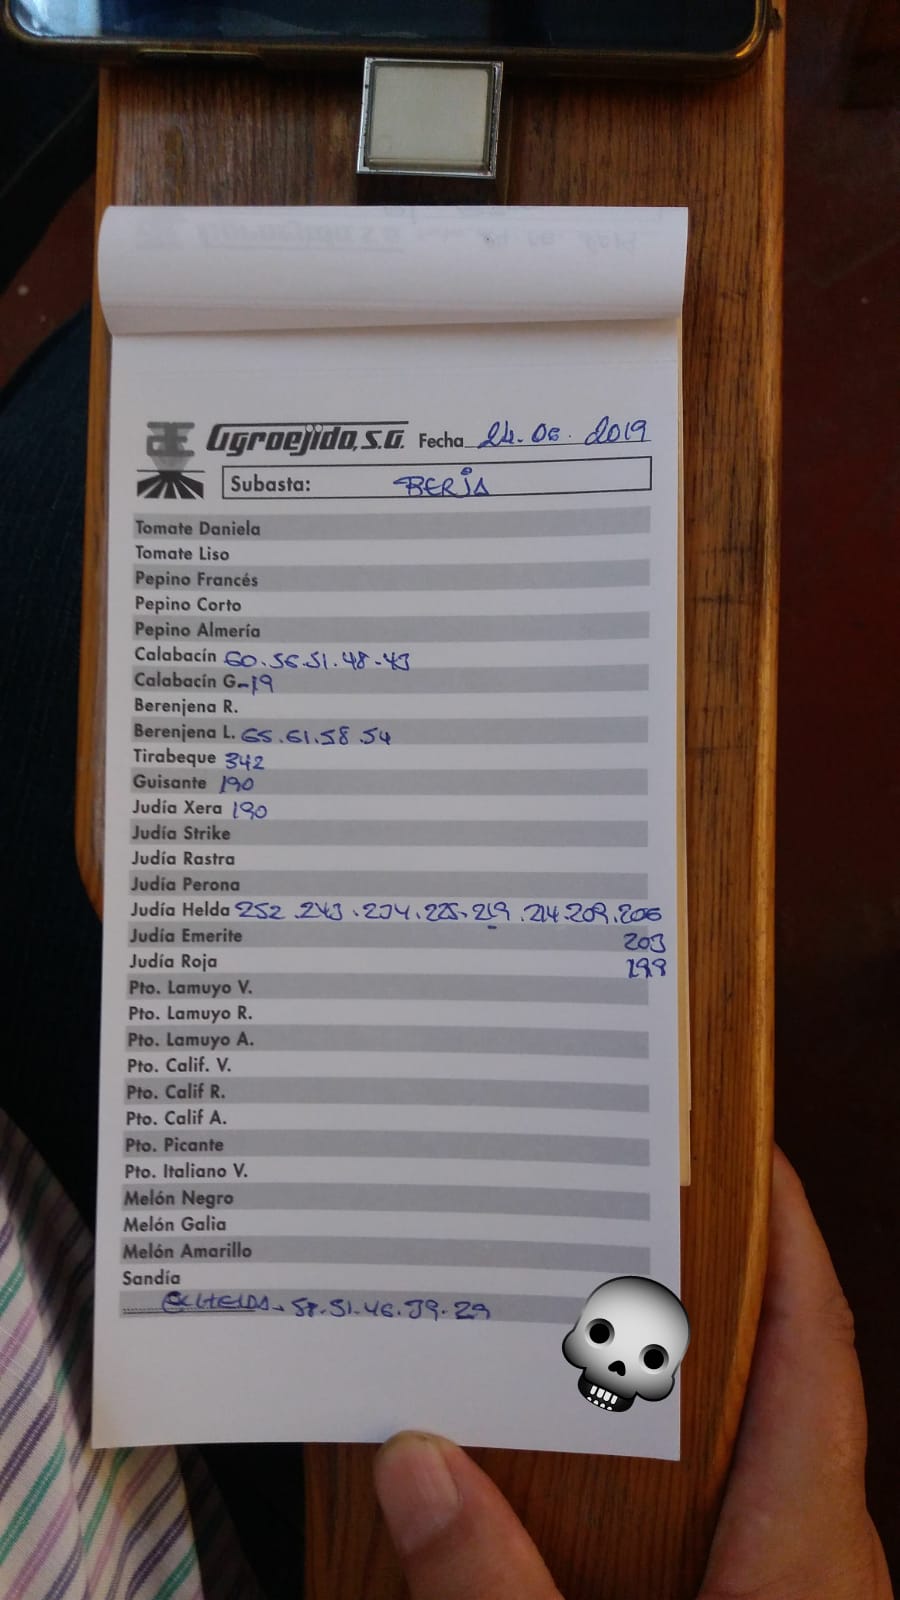 Agroejido, S.A. Fecha 24.06.2019
Subasta: BERJA
Tomate Daniela
Tomate Liso
Pepino Francés
Pepino Corto
Pepino Almería
Calabacín 60.56.51.48-43
Calabacín G-19
Berenjena R.
Berenjena L. 65.61.58.54
Tirabeque 342
Guisante 190
Judía Xera 190
Judía Strike
Judía Rastra
Judía Perona
Judía Helda 252.243.234.225.219.214.209.206
Judía Emerite 203
Judía Roja 199
Pto. Lamuyo V.
Pto. Lamuyo R.
Pto. Lamuyo A.
Pto. Calif. V.
Pto. Calif R.
Pto. Calif A.
Pto. Picante
Pto. Italiano V.
Melón Negro
Melón Galia
Melón Amarillo
Sandía
51.46.39.29